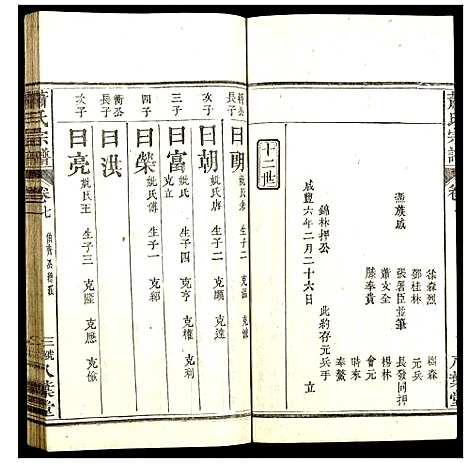 蕭氏宗譜
卷
八葉堂
徐森烈
樹森
鄧桂林
元兵
憑族戚
張署臣並筆
長發同立
蕭文全
楊林
會元
滕奉貴
時來
奉鰲
錦林押公
此約存元兵手
立
咸豐六年二月二十六日
十二世
長子
曰朝
生子二
克
長子
曰朝
妣氏唐
生子二
克順
克達
三子
曰富
妣氏
生子四
克亨
克權
克利
克立
四子
曰榮
妣氏傅
生子一
克郁
長子
曰洪
次子
曰亮
妣氏王
生子三
克隆
克應
克儉
蕭氏宗譜
卷七
三號
八葉堂